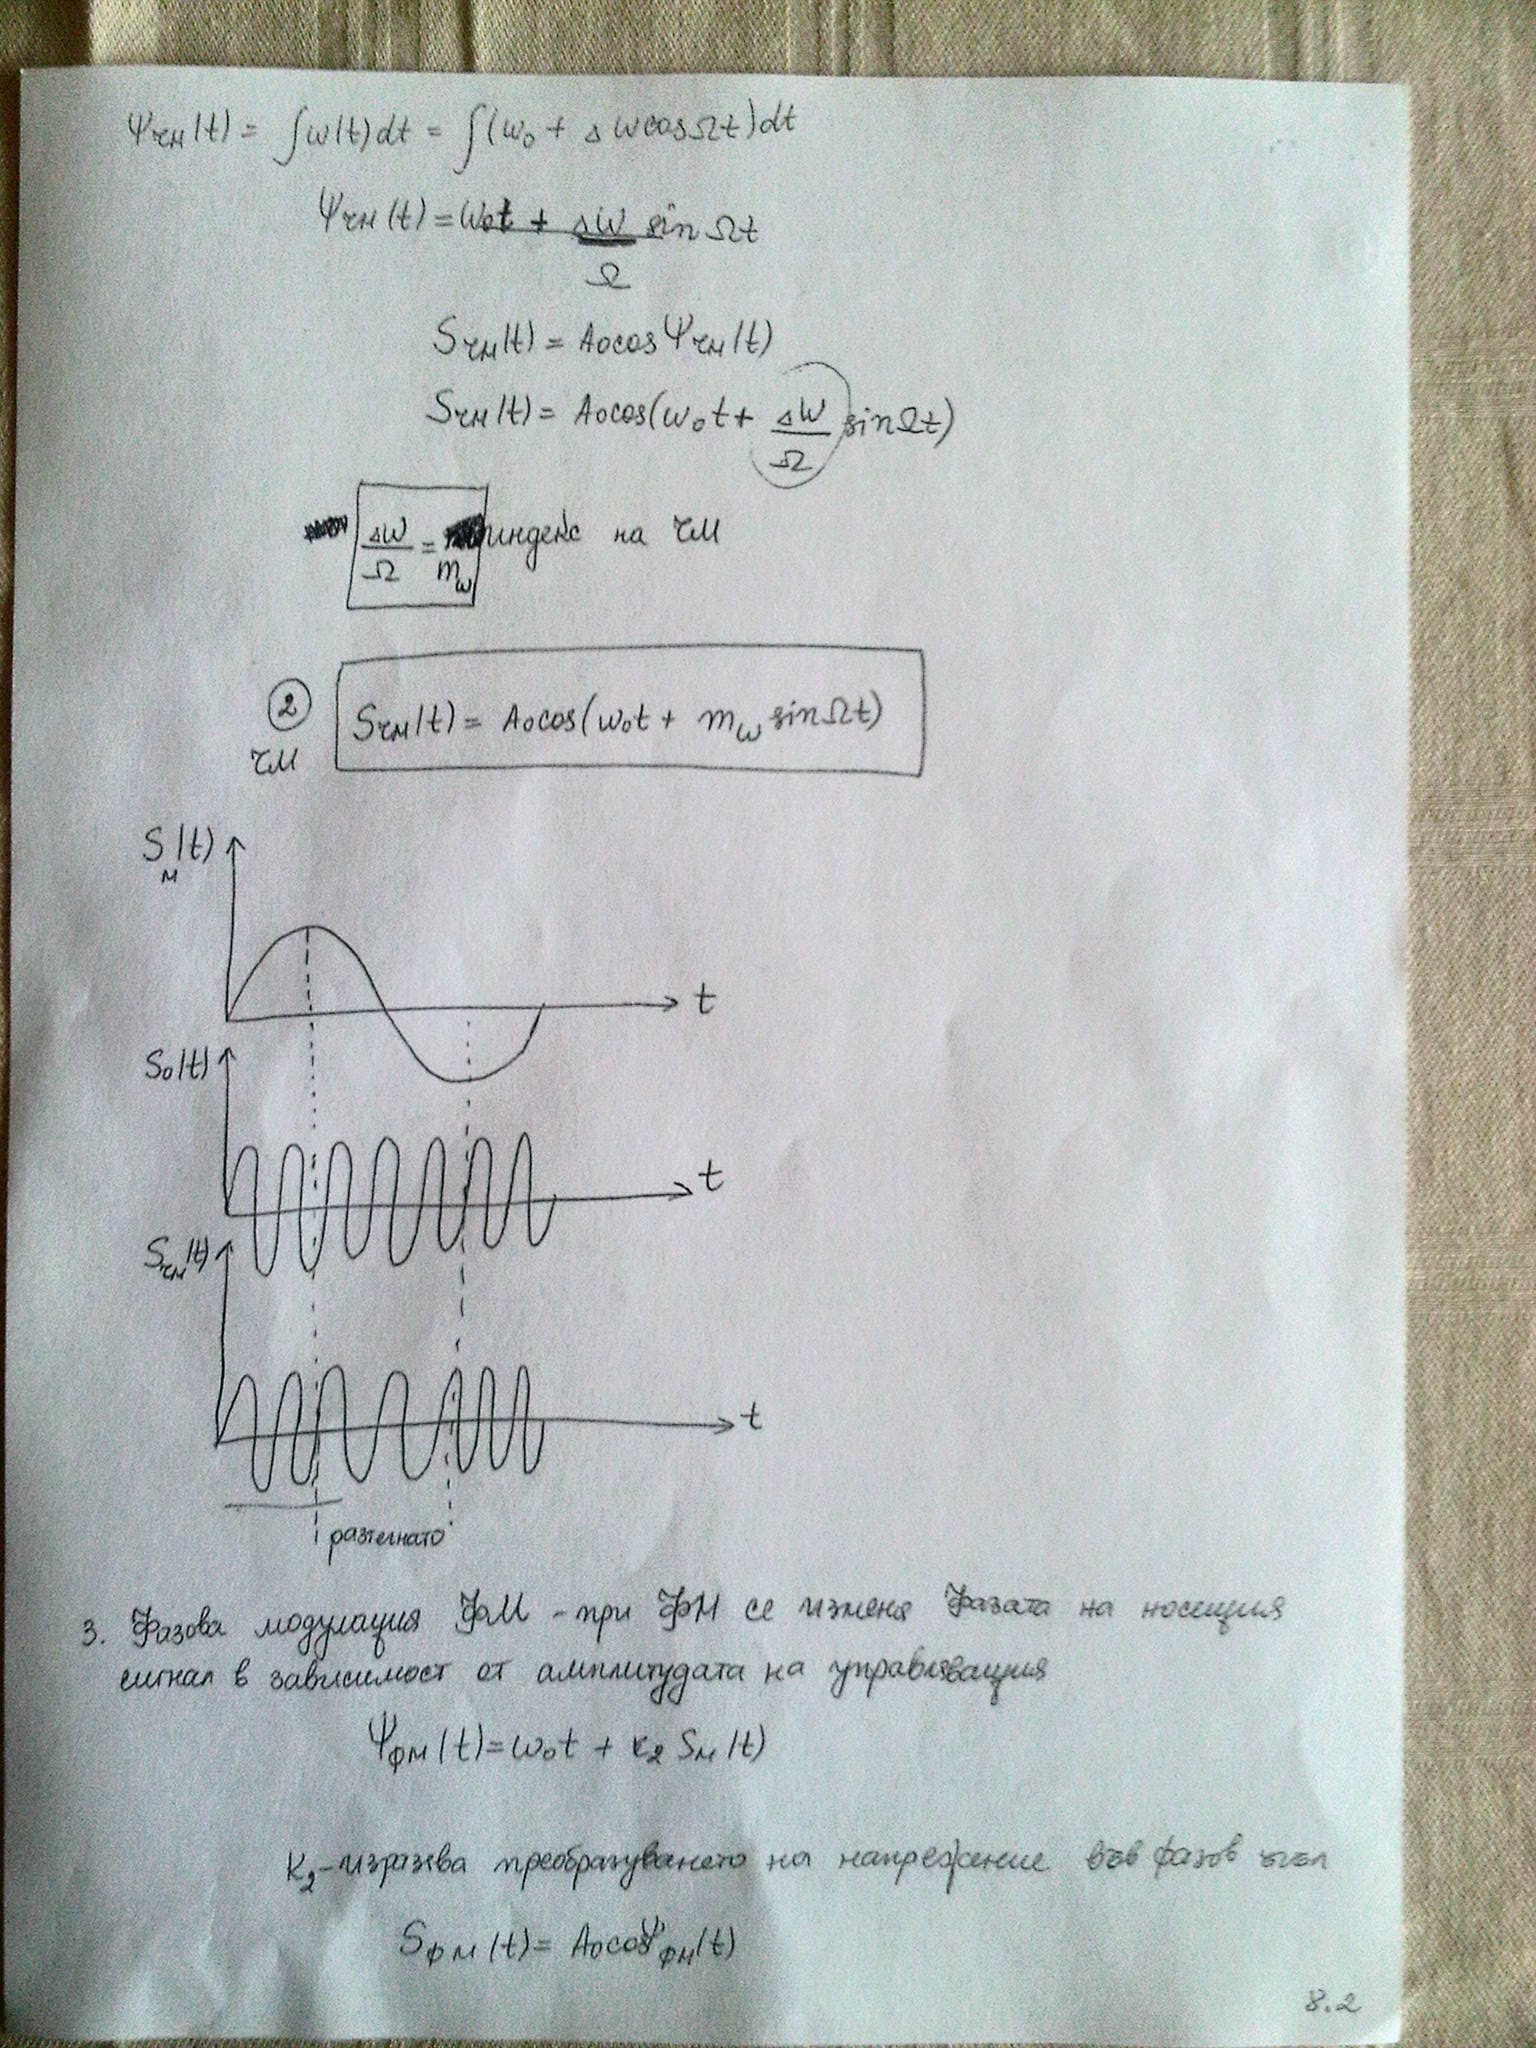 Ψчм(t) = ∫ω(t)dt = ∫(ω₀ + ΔωcosΩt)dt
Ψчм(t) = ω₀t + Δω/Ω sinΩt
Sчм(t) = A₀cosΨчм(t)
Sчм(t) = A₀cos(ω₀t + Δω/Ω sinΩt)
Δω/Ω = mω индекс на ЧМ
2 ЧМ Sчм(t) = A₀cos(ω₀t + mω sinΩt)
Sм(t)
t
S₀(t)
t
Sчм(t)
t
разтегнато
3. Фазова модулация ФМ - при ФМ се изменя фазата на носещия
сигнал в зависимост от амплитудата на управляващия
Ψфм(t) = ω₀t + к₂ Sм(t)
к₂ - изразява преобразуването на напрежение във фазов ъгъл
Sфм(t) = A₀cosΨфм(t)
8.2